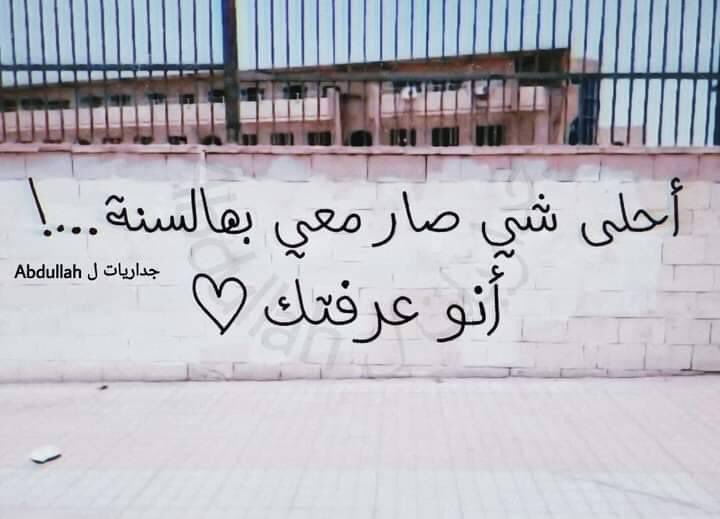 أحلى شي صار معي بهالسنة....!
أنو عرفتك ♡
جداريات ل Abdullah